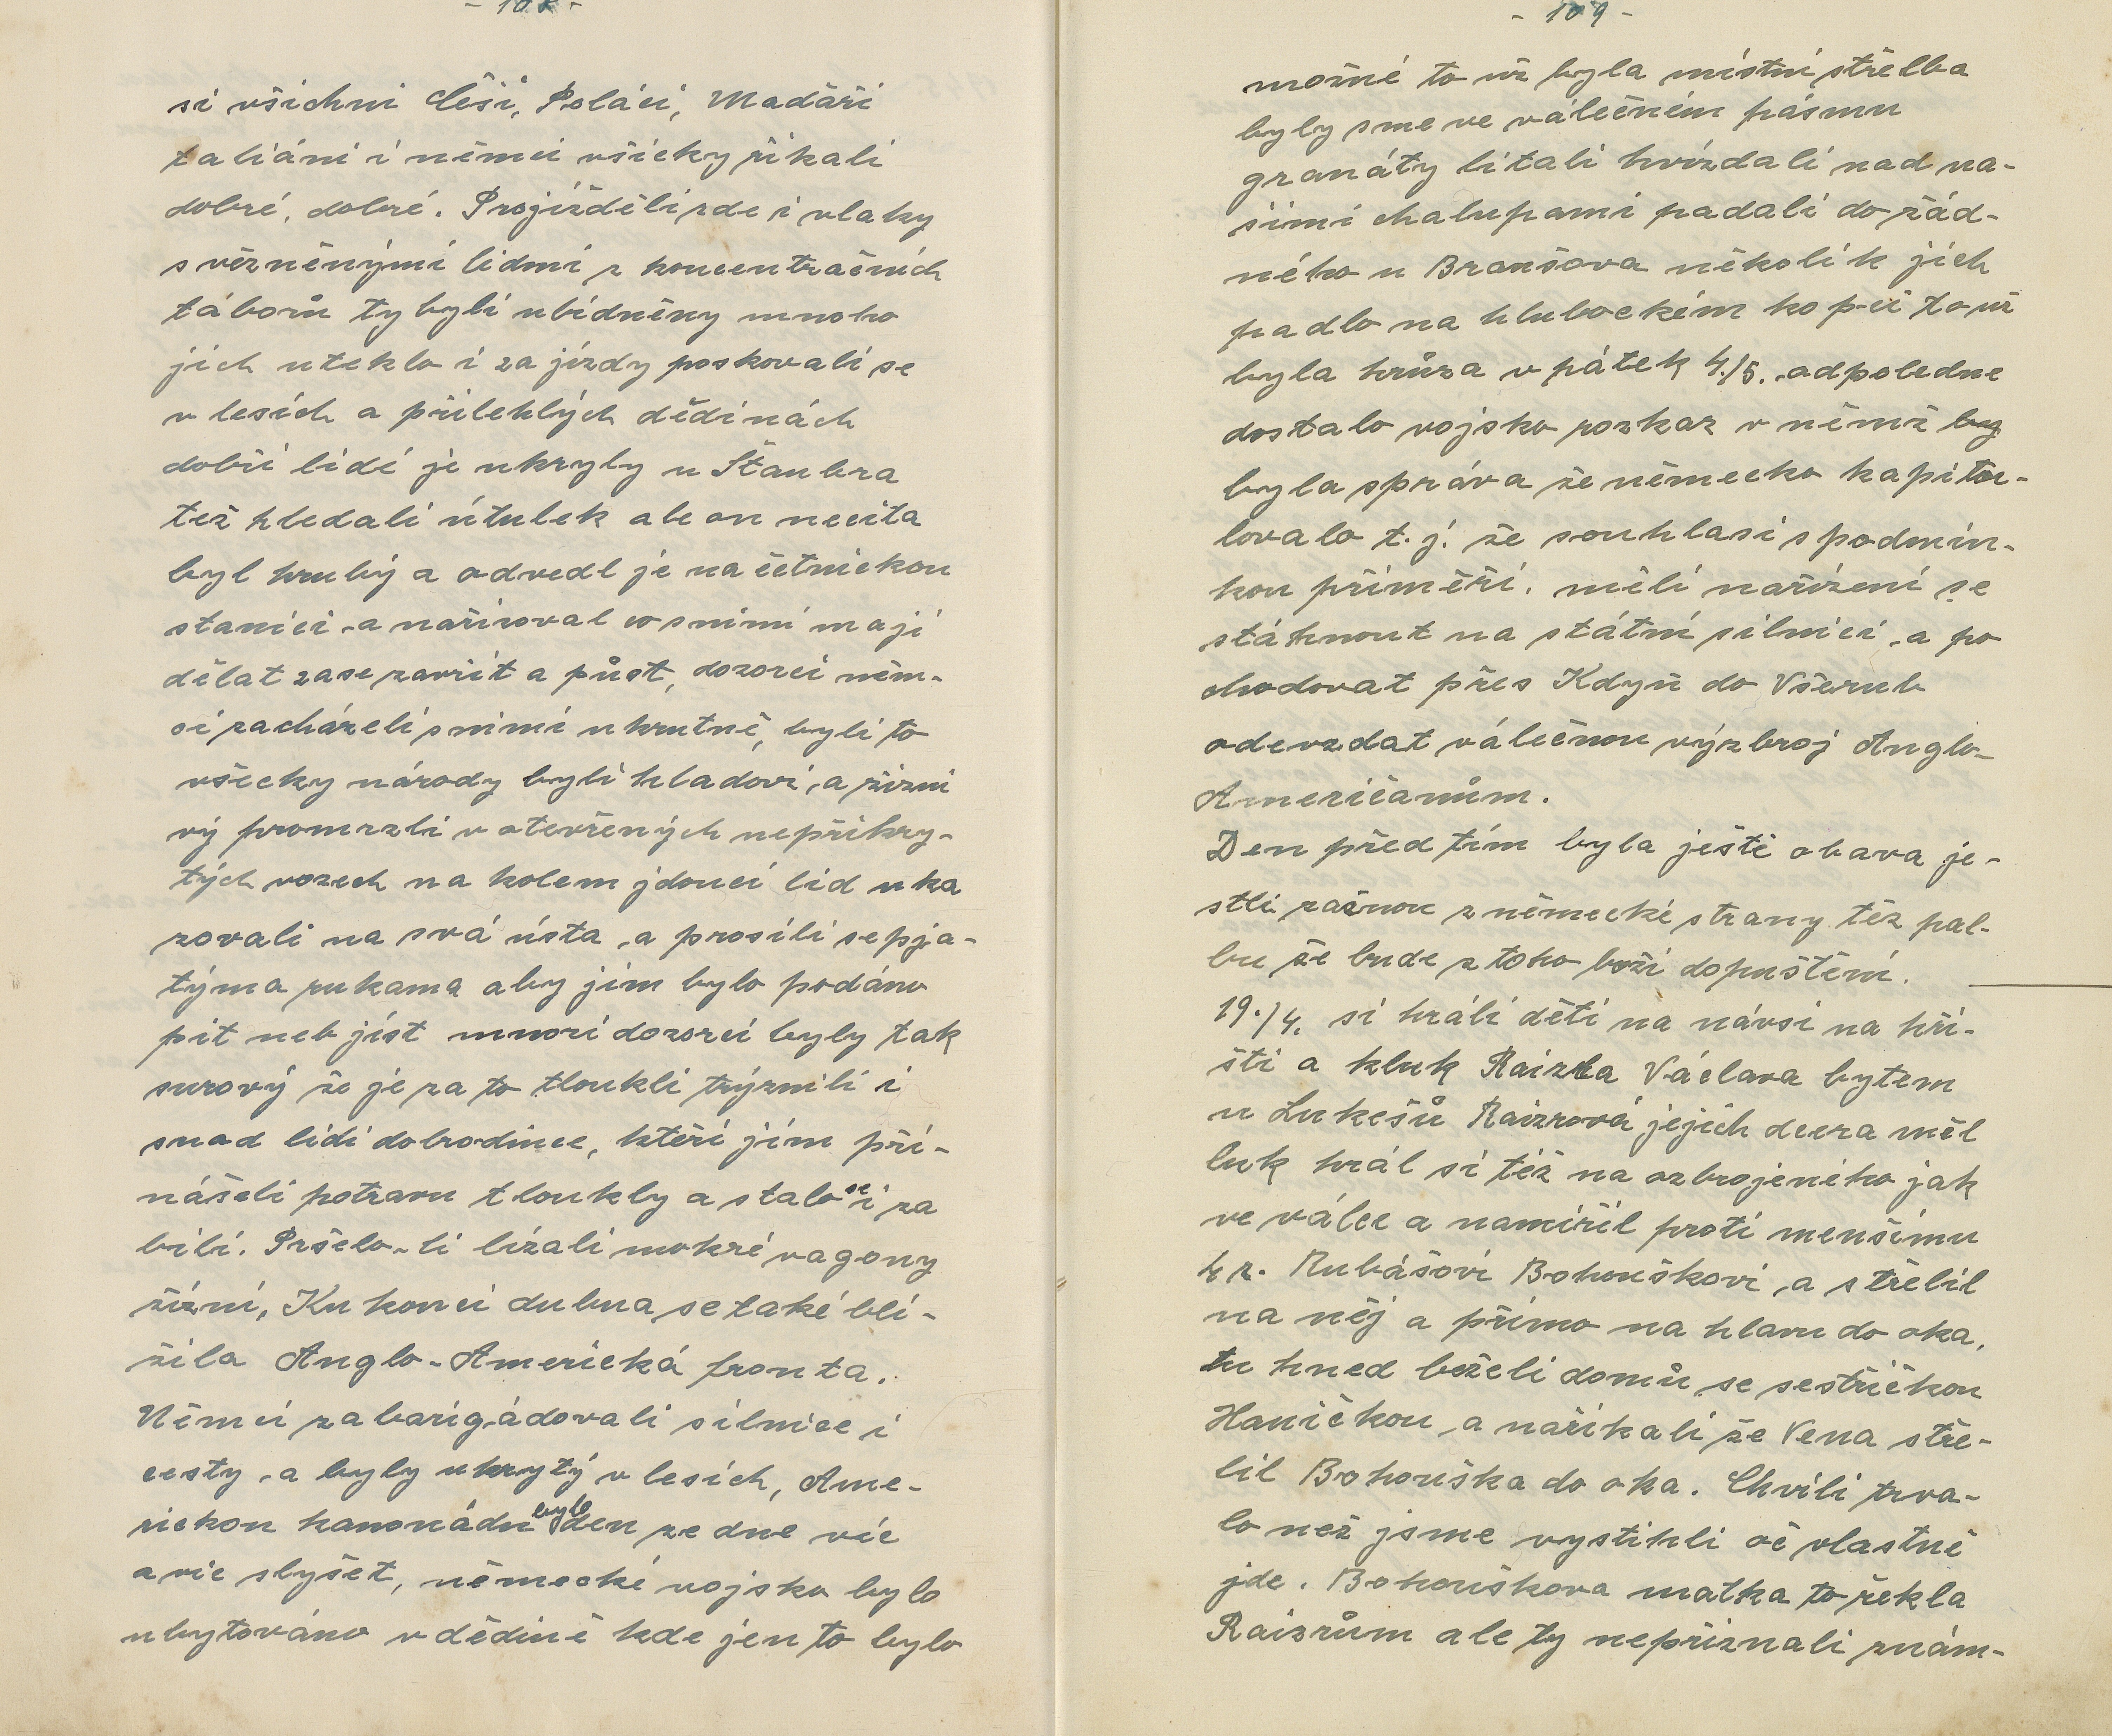 - 108 -
si všichni Češi, Poláci, Madaři
taliáni i němci všicky řikali
dobré, dobré. Projížděli zde i vlaky
s vězněnými lidmi z koncentračních
táborů ty byli ubídněny mnoho
jich uteklo i za jízdy poskovali se
v lesích a přilehlých dědinách
dobří lidé je ukryly u Štaubra
tež hledali útulek ale on necita
byl hrubý a odvedl je na četnickou
stanici a nařizoval co snimi mají
dělat zase zavřít a půst, dozorci něm-
ci zacházeli snimi ukrutně, byli to
všecky národy byli hladoví, a žizni
vý promrzli v otevřených nepřikry-
tých vozech na kolem jdoucí lid uka
zovali na svá ústa, a prosili sepja-
týma rukama aby jim bylo podáno
pit neb jíst mnozí dozorci byly tak
surový že je za to tloukli trýznili i
snad lidi dobrodince, kteří jím při-
nášeli potravu tloukly a stalo se i za
bili. Pršelo-li lízali mokré vagony
žízní, Ku konci dubna se také blí-
žila Anglo-Americká fronta.
Němci zabarigádovali silnice i
cesty, a byly ukrytý v lesích, Ame-
rickou kanonádu bylo den ze dne víc
a víc slyšet, německé vojsko bylo
ubytováno v dědině kde jen to bylo
- 109 -
možné to už byla místní střelba
byly sme ve válečném pásmu
granáty lítali hvízdali nad na-
šimi chalupami padali do řád-
ného u Branšova několik jich
padlo na hlubockém kopci to už
byla hrůza v pátek 4./5. odpoledne
dostalo vojsko rozkaz v němž by
byla správa že německo kapitu-
lovalo t.j. že souhlasi s podmín-
kou příměří. měli nařízení se
stáhnout na státní silnici, a po
chodovat přes Kdyň do Všerub
odevzdat válečnou výzbroj Anglo-
Američanům.
Den před tím byla ještě obava je-
stli začnou z německé strany též pal-
bu že bude z toho boží dopuštění.
19./4. si hráli děti na návsi na hři-
šti a kluk Raizra Václava bytem
u Lukešů Raizrová jejich dcera měl
luk hrál si též na ozbrojeného jak
ve válce a namířil proti menšímu
4 r. Rubášovi Bohouškovi, a střelil
na něj a přímo na hlavu do oka,
tu hned beželi domů se sestřičkou
Haničkou, a nařikali že Vena stře-
lil Bohouška do oka. Chvíli trva-
lo než jsme vystihli oč vlastně
jde. Bohouškova matka to řekla
Raizrům ale ty nepřiznali znám-